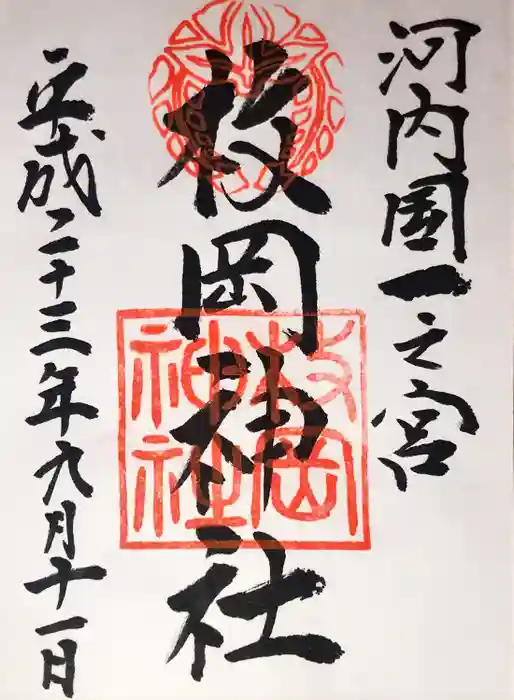 河内国一之宮
枚岡神社
枚岡
神社
平成二十三年九月十一日